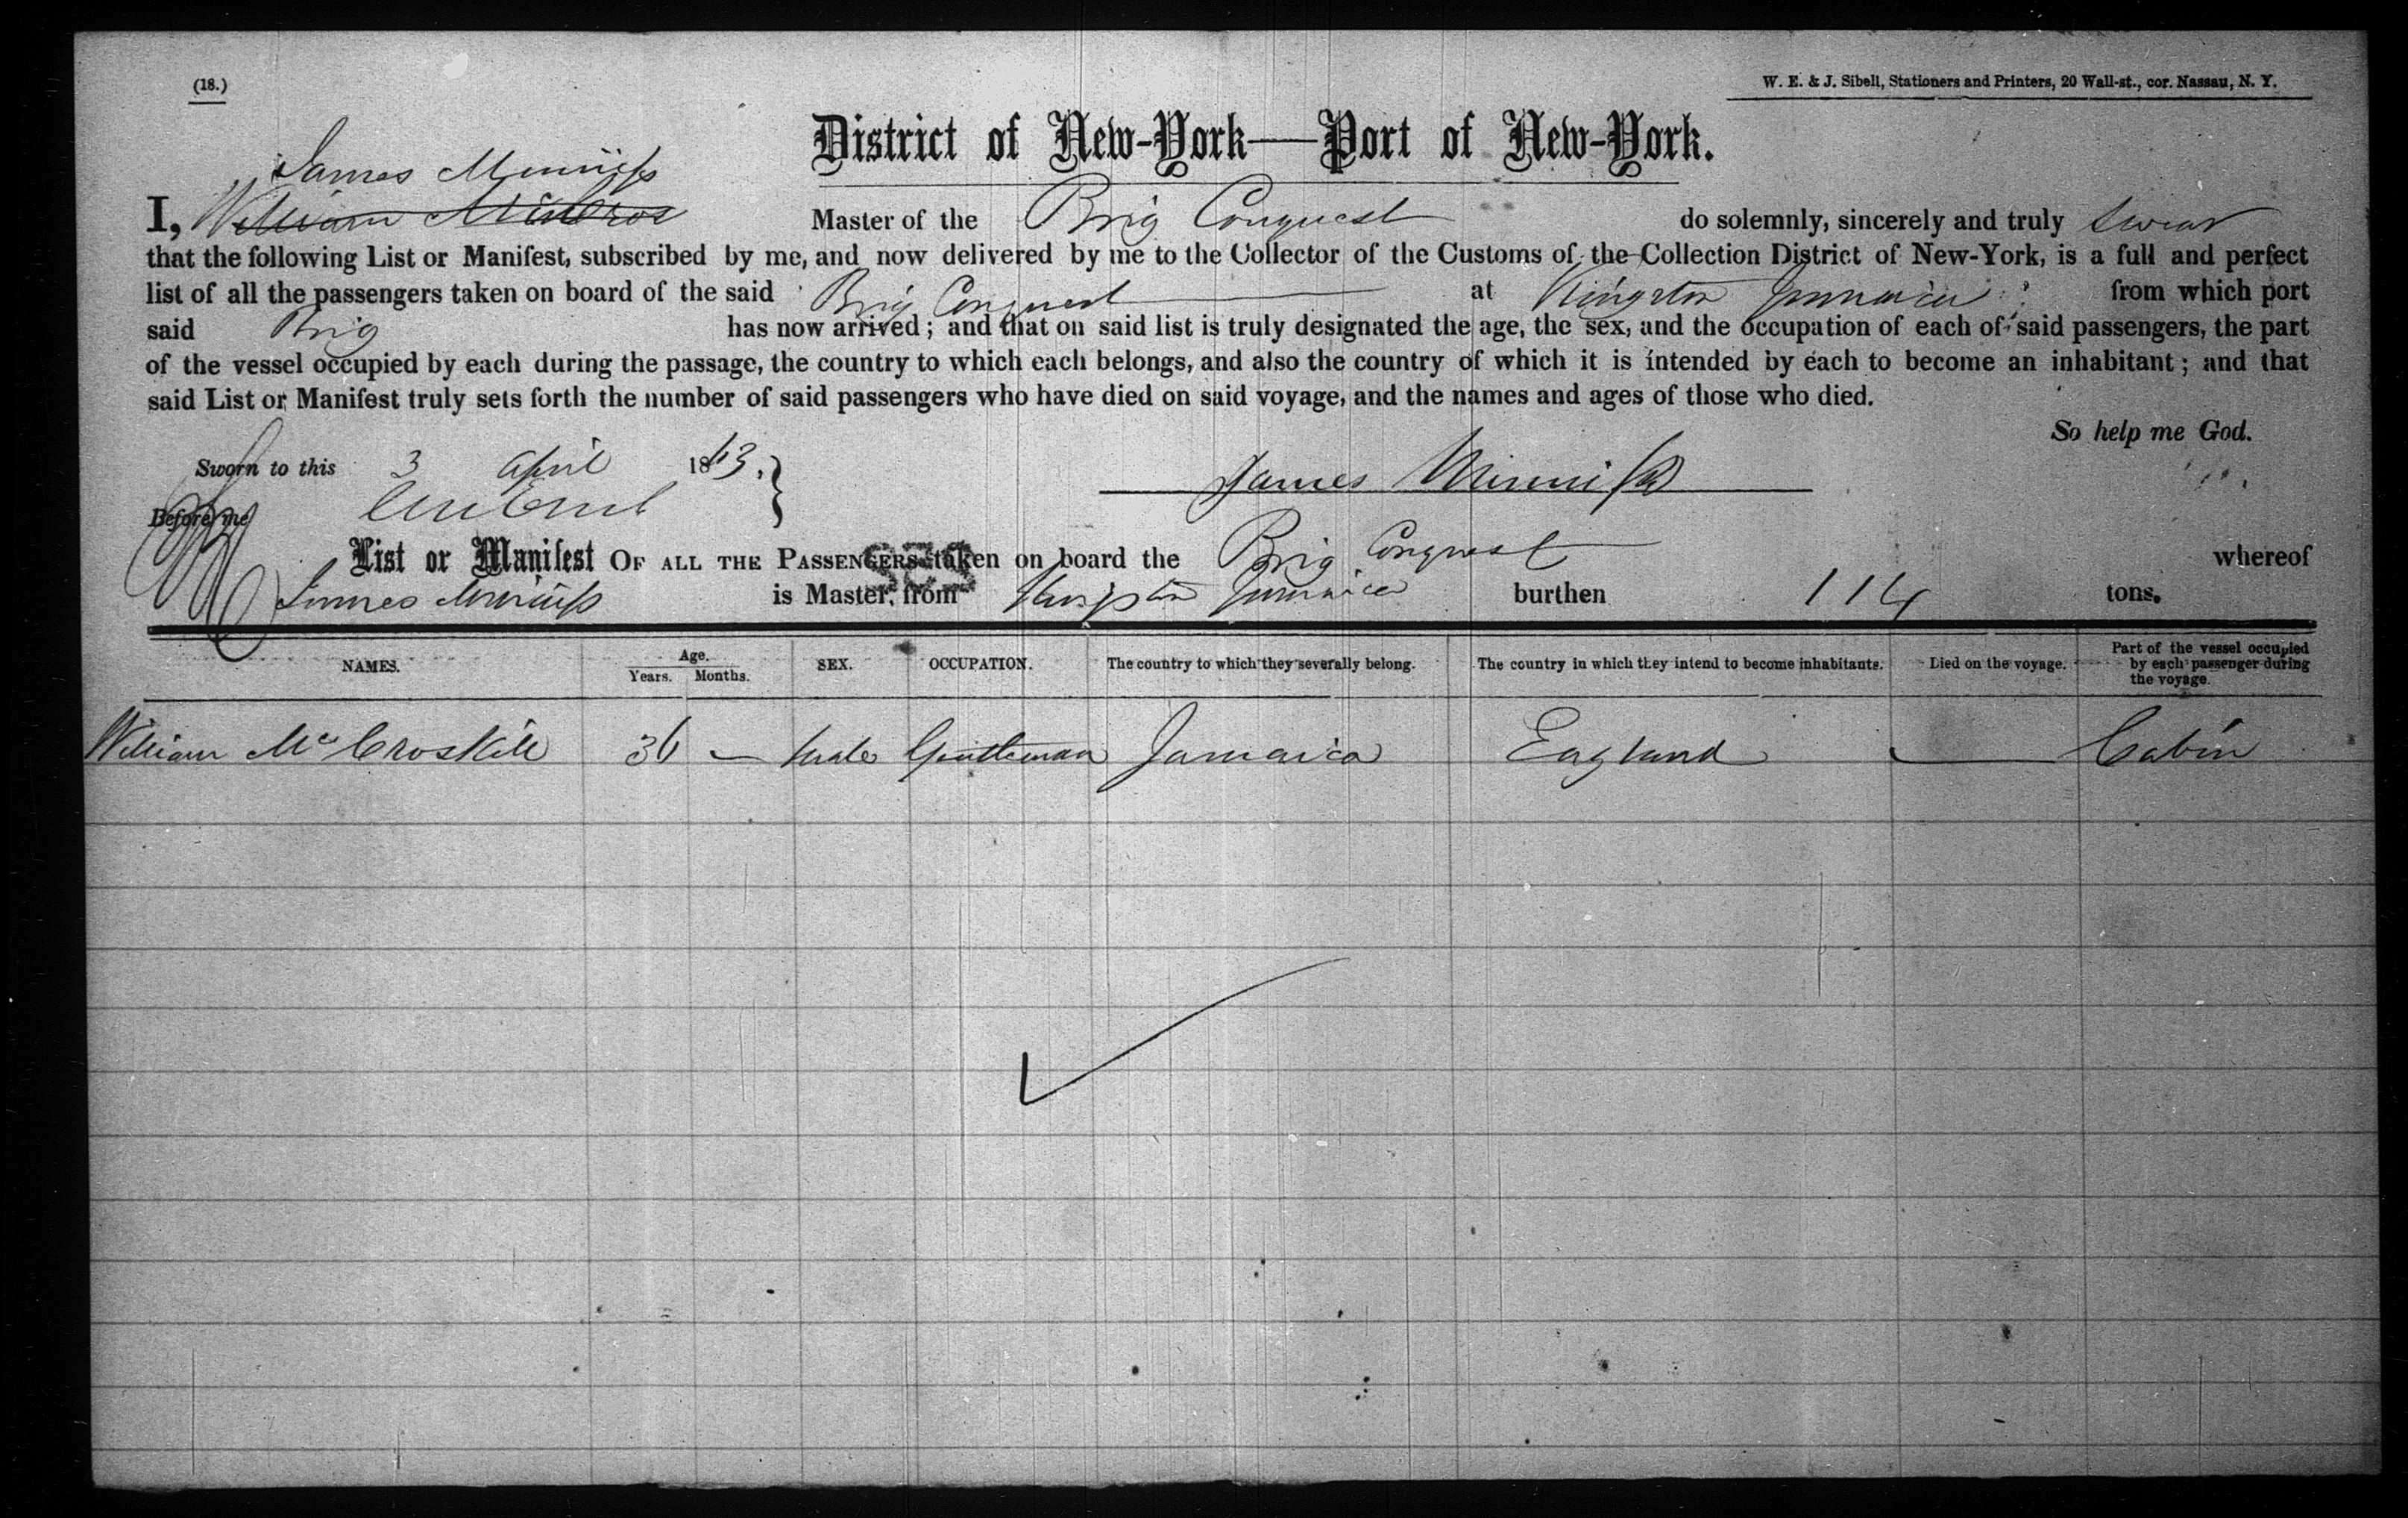 (18.)
W. E. & J. Sibell, Stationers and Printers, 20 Wall-st., cor. Nassau, N. Y.
District of New-York—Port of New-York.
James
I, William Master of the Brig Conquest do solemnly, sincerely and truly swear
that the following List or Manifest, subscribed by me, and now delivered by me to the Collector of the Customs of the Collection District of New-York, is a full and perfect
list of all the passengers taken on board of the said Brig Conquest at Kingston Jamaica from which port
said Brig has now arrived; and that on said list is truly designated the age, the sex, and the occupation of each of said passengers, the part
of the vessel occupied by each during the passage, the country to which each belongs, and also the country of which it is intended by each to become an inhabitant; and that
said List or Manifest truly sets forth the number of said passengers who have died on said voyage, and the names and ages of those who died.
So help me God.
Sworn to this 3 April 1863.
James
Before me
List or Manifest OF ALL THE PASSENGERS taken on board the Brig Conquest whereof
James is Master, from Kingston Jamaica burthen 114 tons.
NAMES. Age. Years. Months. SEX. OCCUPATION. The country to which they severally belong. The country in which they intend to become inhabitants. Died on the voyage. Part of the vessel occupied by each passenger during the voyage.
William Mc Croskill 36 — Male Gentleman Jamaica England — Cabin